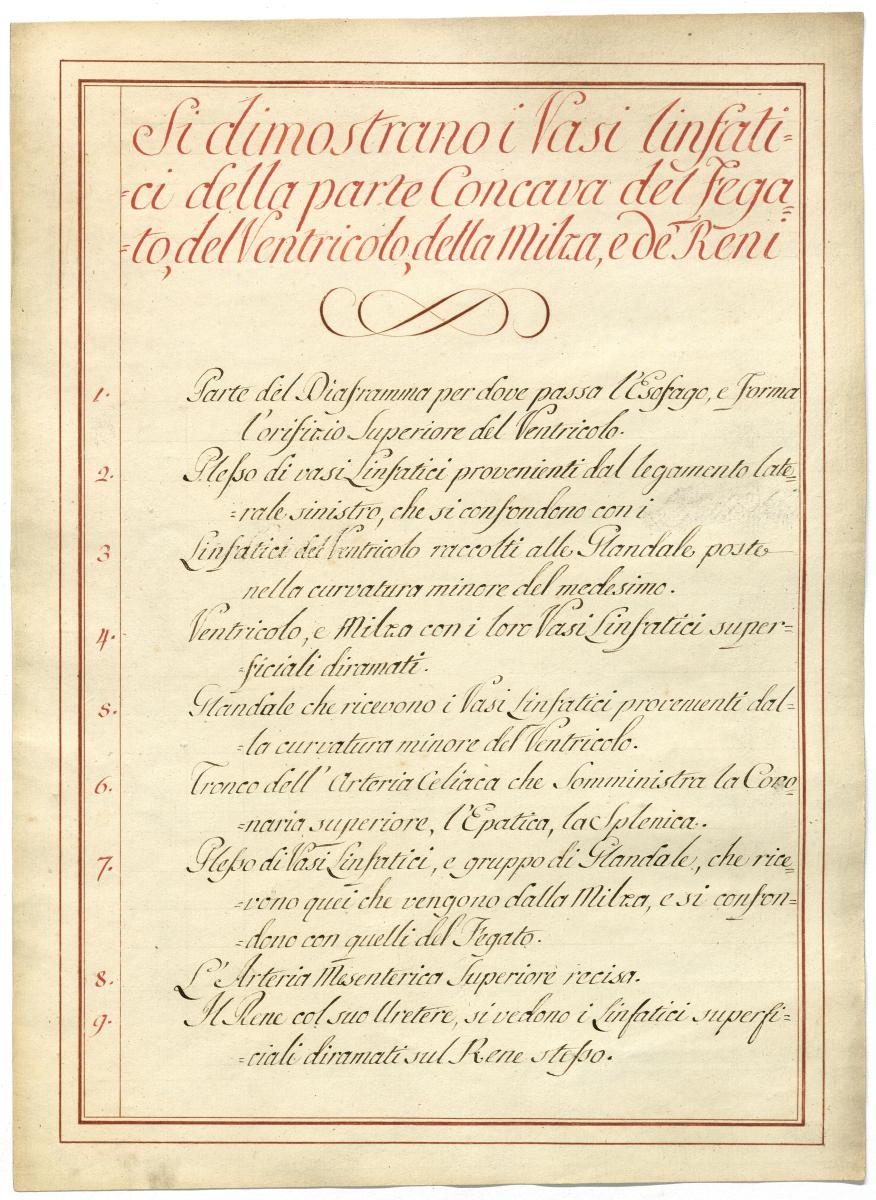 Si dimostrano i Vasi linfati=
=ci della parte Concava del Fega=
=to, del Ventricolo, della Milza, e de' Reni
1. Parte del Diaframma per dove passa l'Esofago, e Forma
l'orifizio Superiore del Ventricolo.
2. Plesso di vasi Linfatici provenienti dal legamento late=
=rale sinistro, che si confondono con i
3 Linfatici del Ventricolo raccolti alle Glandale poste
nella curvatura minore del medesimo.
4. Ventricolo, e Milza con i loro Vasi Linfatici super=
=ficiali diramati.
5. Glandale che ricevono i Vasi Linfatici provenienti dal=
=la curvatura minore del Ventricolo.
6. Tronco dell' Arteria Celiaca che Somministra la Coro=
=naria superiore, l'Epatica, la Splenica.
7. Plesso di Vasi Linfatici, e gruppo di Glandale, che rice=
=vono quei che vengono dalla Milza, e si confon=
=dono con quelli del Fegato.
8. L' Arteria Mesenterica Superiore recisa.
9. Il Rene col suo Uretere, si vedono i Linfatici superfi=
=ciali diramati sul Rene stesso.